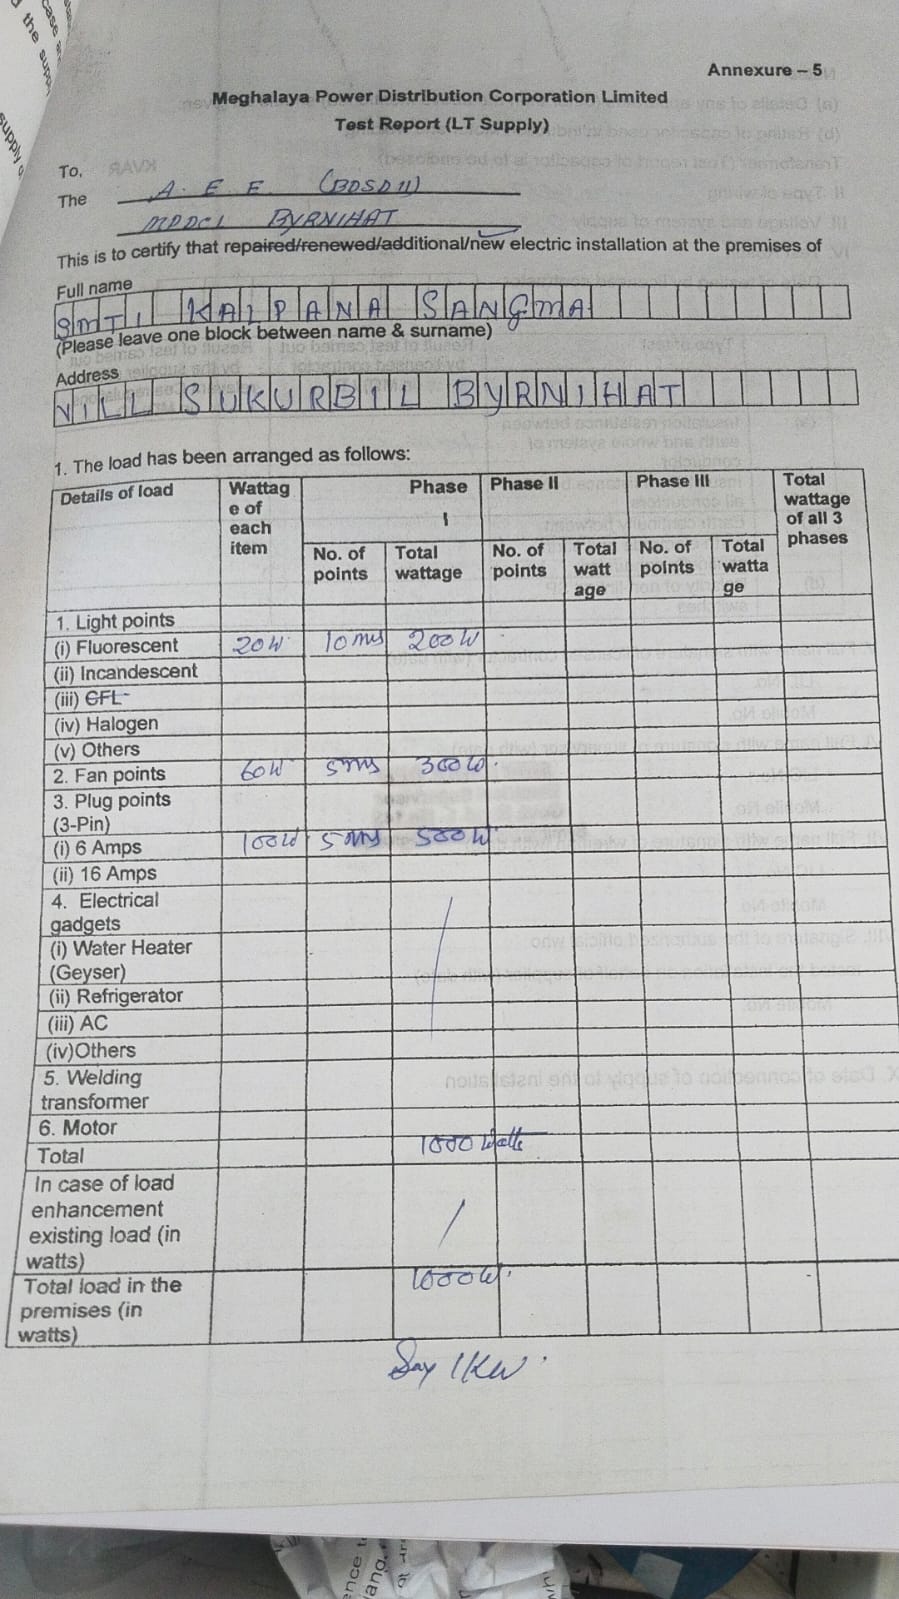 Annexure – 5
Meghalaya Power Distribution Corporation Limited
Test Report (LT Supply)
To,
The A. E. E. (BDSD II)
MPDCL BYRNIHAT
This is to certify that repaired/renewed/additional/new electric installation at the premises of
Full name
SMTI KALPANA SANGMA
(Please leave one block between name & surname)
Address
VILL SUKURBIL BYRNIHAT
1. The load has been arranged as follows:
Details of load
Wattag
e of
each
item
Phase
I
Phase II
Phase III
Total
wattage
of all 3
phases
No. of
points
Total
wattage
No. of
points
Total
watt
age
No. of
points
Total
watta
ge
1. Light points
(i) Fluorescent 20W 10 nos 200W
(ii) Incandescent
(iii) CFL
(iv) Halogen
(v) Others
2. Fan points 60W 5 nos 300W.
3. Plug points
(3-Pin)
(i) 6 Amps 100W 5 nos 500W
(ii) 16 Amps
4. Electrical
gadgets
(i) Water Heater
(Geyser)
(ii) Refrigerator
(iii) AC
(iv)Others
5. Welding
transformer
6. Motor
Total 1000 Watts
In case of load
enhancement
existing load (in
watts)
Total load in the
premises (in
watts)
1000W.
Say 1KW.